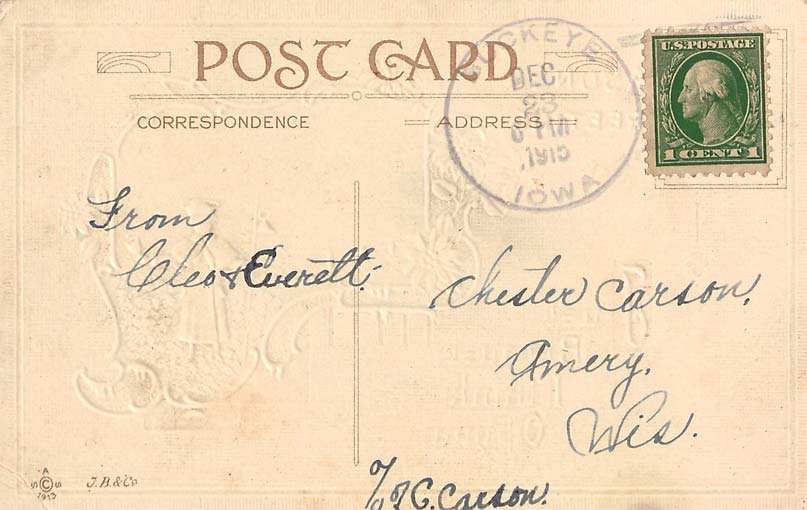 POST CARD
CORRESPONDENCE
ADDRESS
BUCKEYE
DEC
23
1915
IOWA
U.S. POSTAGE
1 CENT 1
From
Cleo & Everett.
Chester Carson.
Amery.
Wis.
A
S © S
1913
J.B. & Co
Carson.